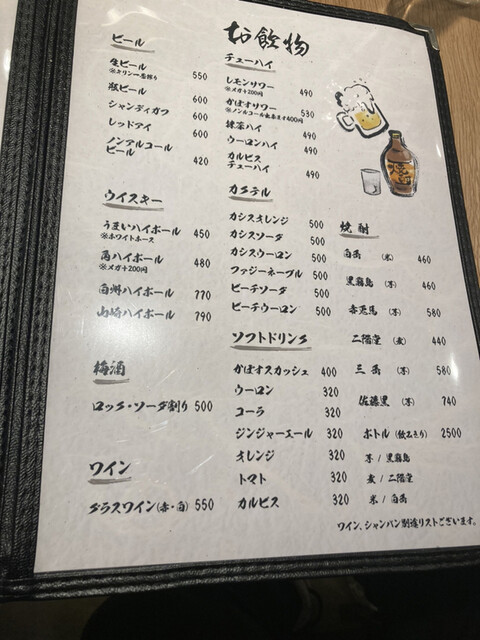 お飲物
ビール
生ビール 550
※キリン一番搾り
瓶ビール 600
シャンディガフ 600
レッドアイ 600
ノンアルコール
ビール 420
ウイスキー
うまいハイボール 450
※ホワイトホース
角ハイボール 480
※メガ+200円
白州ハイボール 770
山崎ハイボール 790
梅酒
ロック・ソーダ割り 500
ワイン
グラスワイン(赤・白) 550
チューハイ
レモンサワー 490
※メガ+200円
かぼすサワー 530
※ノンアルコール出来ます400円
抹茶ハイ 490
ウーロンハイ 490
カルピス
チューハイ 490
カクテル
カシスオレンジ 500
カシスソーダ 500
カシスウーロン 500
ファジーネーブル 500
ピーチソーダ 500
ピーチウーロン 500
ソフトドリンク
かぼすスカッシュ 400
ウーロン 320
コーラ 320
ジンジャーエール 320
オレンジ 320
トマト 320
カルピス 320
焼酎
白岳 (米) 460
黒霧島 (芋) 460
赤兎馬 (芋) 580
二階堂 (麦) 440
三岳 (芋) 580
佐藤黒 (芋) 740
ボトル (飲みきり) 2500
芋 / 黒霧島
麦 / 二階堂
米 / 白岳
ワイン、シャンパン別途リストございます。